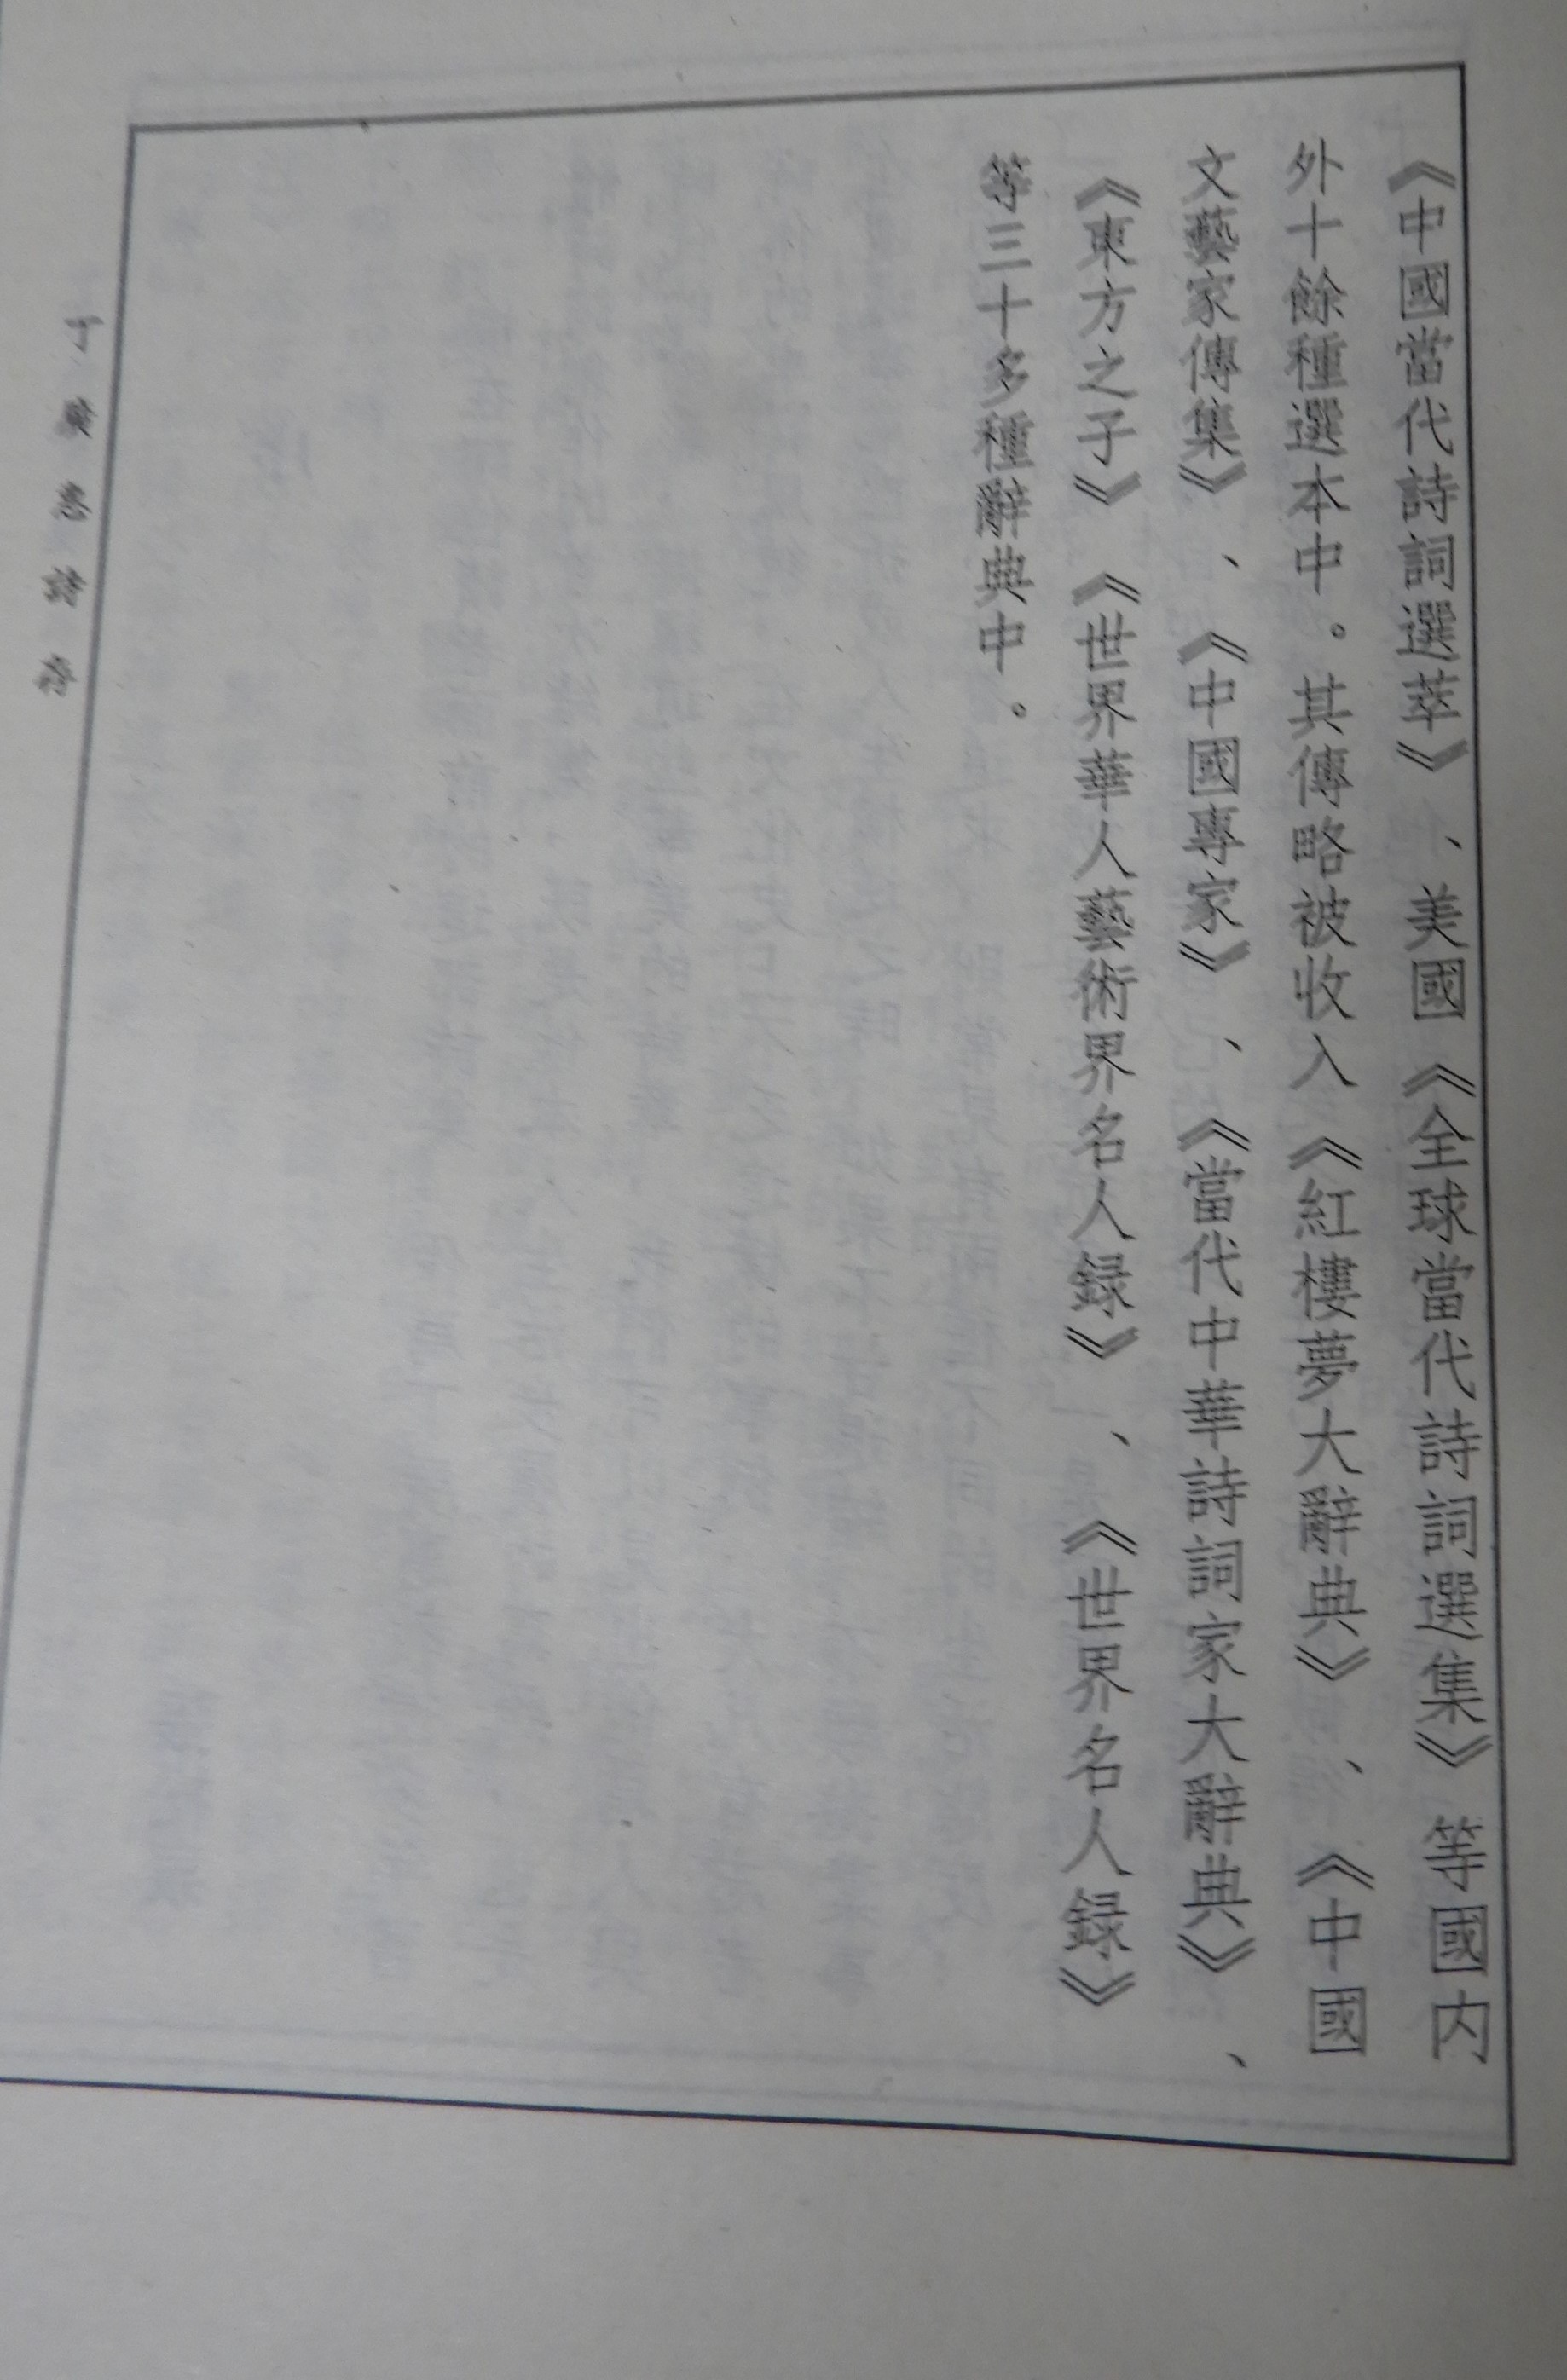 《中國當代詩詞選萃》、美國《全球當代詩詞選集》等國内
外十餘種選本中。其傳略被收入《紅樓夢大辭典》、《中國
文藝家傳集》、《中國專家》、《當代中華詩詞家大辭典》、
《東方之子》《世界華人藝術界名人録》、《世界名人録》
等三十多種辭典中。